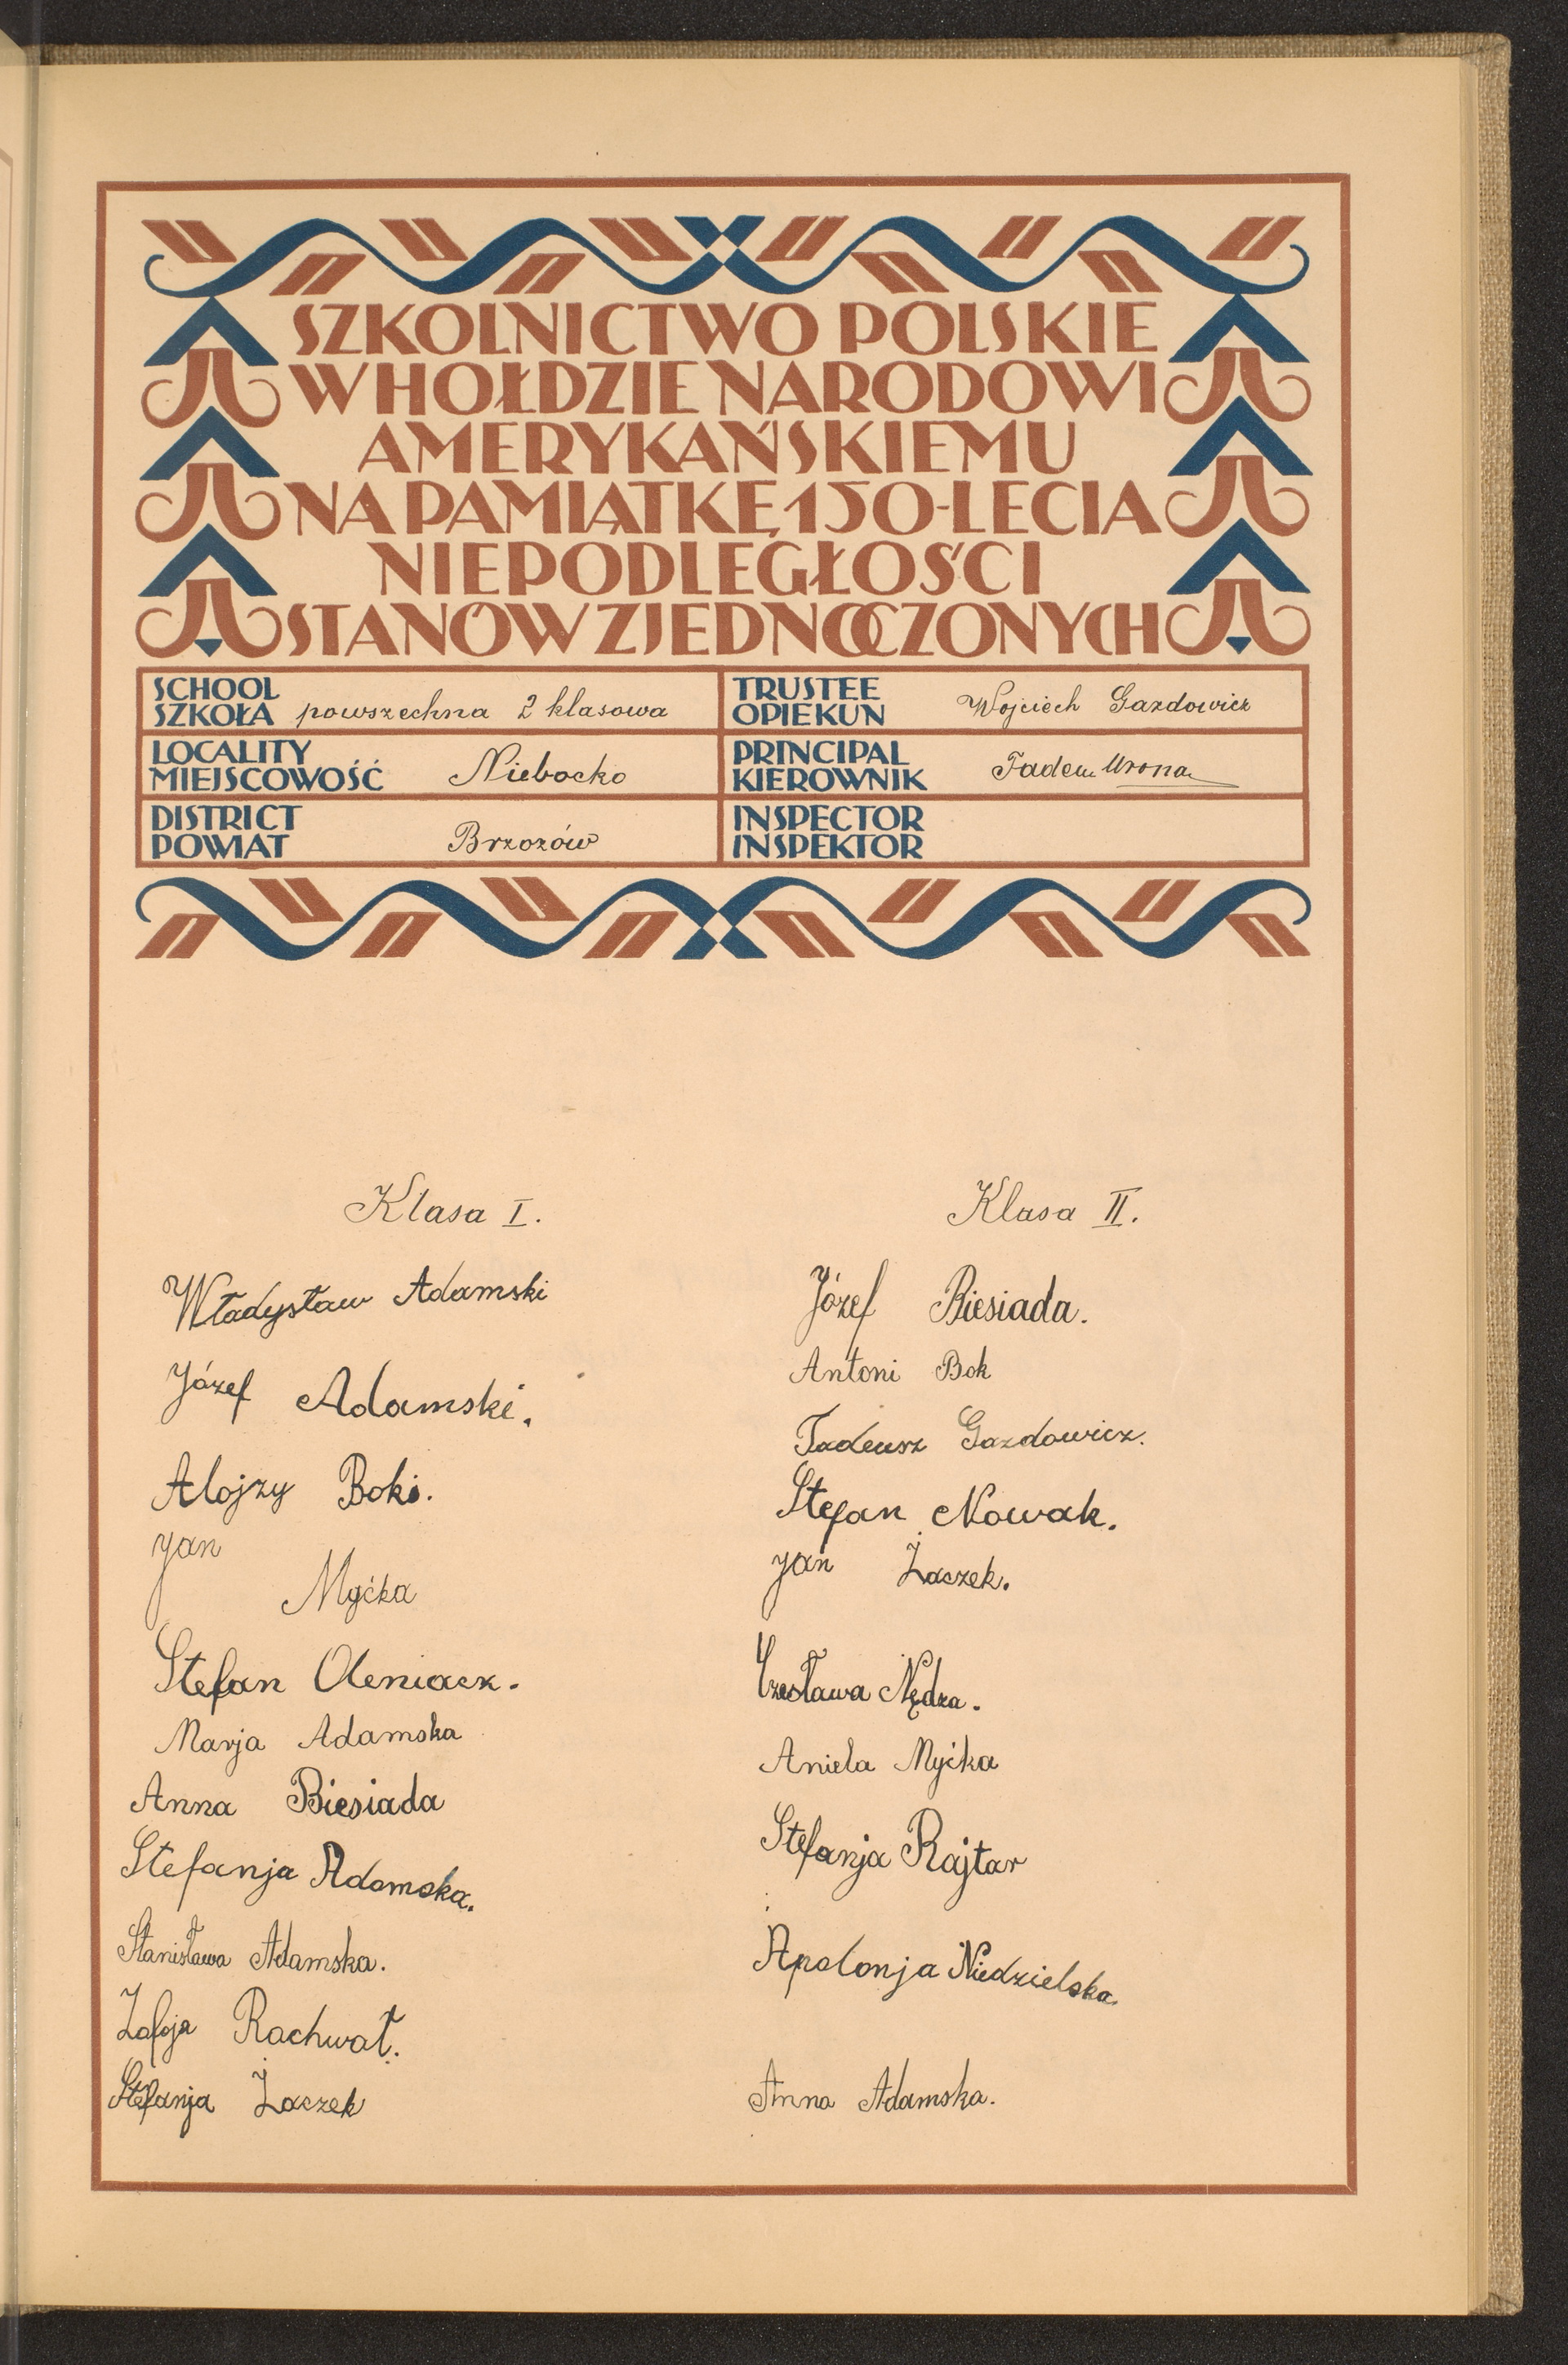 SZKOLNICTWO POLSKIE
W HOŁDZIE NARODOWI
AMERYKAŃSKIEMU
NA PAMIĄTKĘ 150-LECIA
NIEPODLEGŁOŚCI
STANÓW ZJEDNOCZONYCH
SCHOOL
SZKOŁA powszechna 2 klasowa
TRUSTEE
OPIEKUN Wojciech Gazdowicz
LOCALITY
MIEJSCOWOŚĆ Niebocko
PRINCIPAL
KIEROWNIK Tadeu Wrona
DISTRICT
POWIAT Brzozów
INSPECTOR
INSPEKTOR
Klasa I.
Władysław Adamski
Józef Adamski.
Alojzy Boki.
Jan
Myćka
Stefan Oleniacz.
Marja Adamska
Anna Biesiada
Stefanja Adamska.
Stanisława Adamska.
Zofja Rachwał.
Stefanja Żaczek
Klasa II.
Józef Biesiada.
Antoni Bok
Tadeusz Gazdowicz.
Stefan Nowak.
Jan Żaczek.
Czesława Nędza.
Aniela Myćka
Stefanja Rajtar
Apolonja Niedzielska.
Anna Adamska.